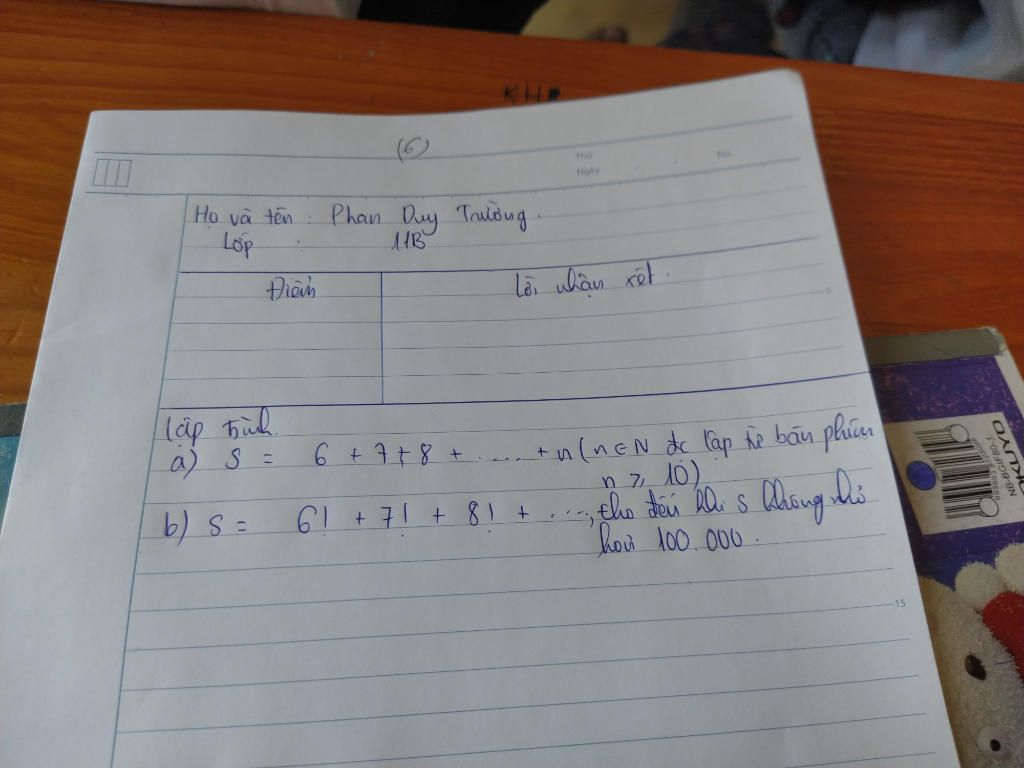 KH
(6)
Thứ
Ngày
No.
Họ và tên : Phan Duy Trường.
Lớp : 11B
Điểm
Lời nhận xét.
Lập trình.
a) S = 6 + 7 + 8 + ..... + n ( n ∈ N đc lập từ bàn phím
n ⩾ 10)
b) S = 6! + 7! + 8! + ....., cho đến khi S không nhỏ
hơn 100.000.
5
15
OKUYO